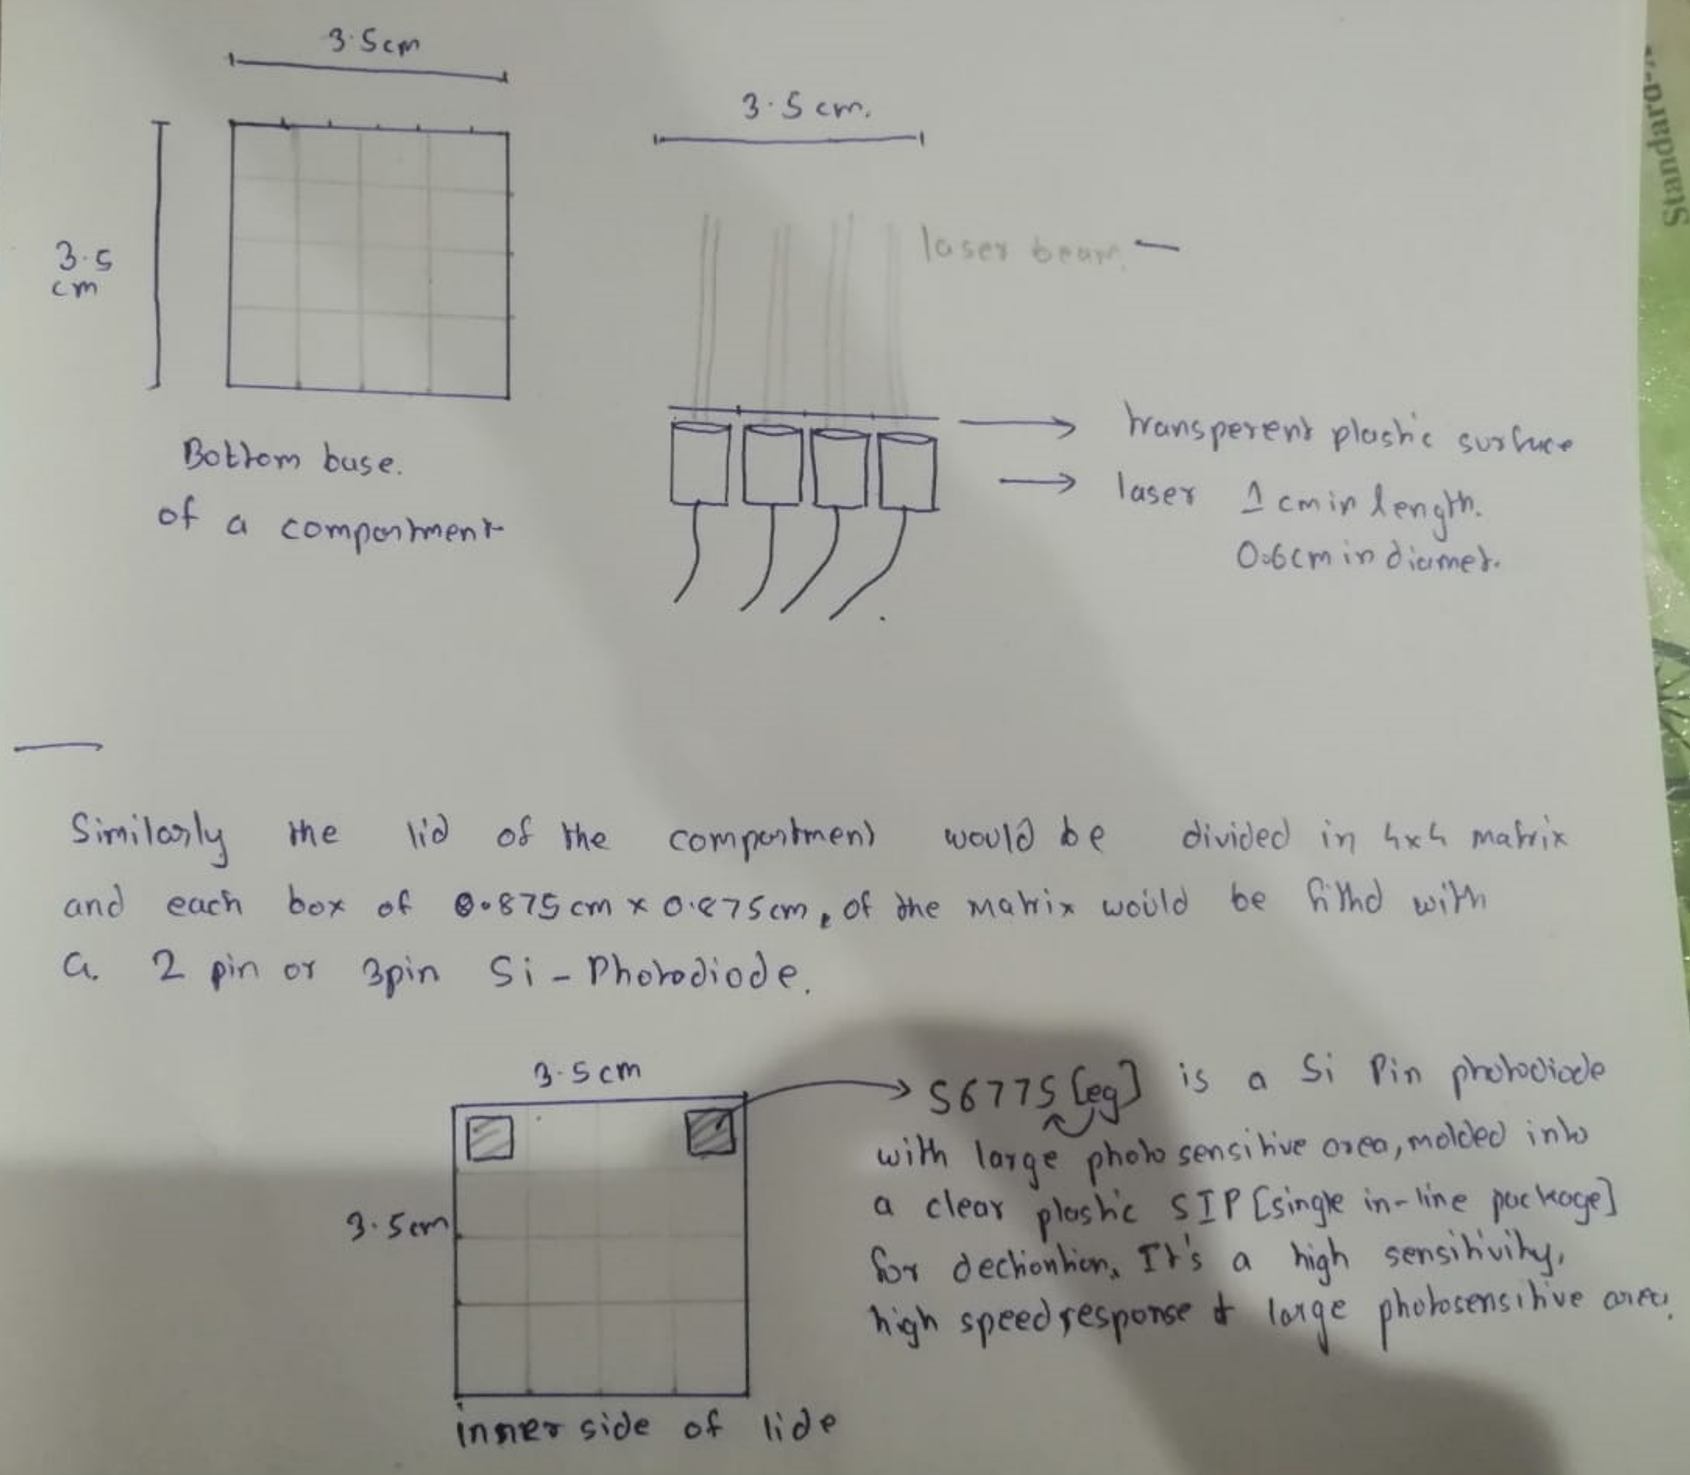 3.5cm
3.5 cm.
3.5
cm
laser beam.
Bottom base.
of a compartment
transperent plastic surface
laser 1 cm in length.
0.6cm in diamet.
Similarly the lid of the compartment would be divided in 4x4 matrix
and each box of 0.875cm x 0.875cm, of the matrix would be fittd with
a. 2 pin or 3pin Si-Photodiode.
3.5cm
3.5cm
S6775 [eg] is a Si Pin photodiode
with large photo sensitive area, molded into
a clear plastic SIP [single in-line package]
for dectiontion, It's a high sensitivity,
high speed response & large photosensitive area.
inner side of lide
Standard